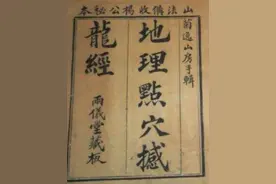 山法備收楊公秘本
菊逸山房手輯
地理點穴撼
龍經
兩儀堂藏板